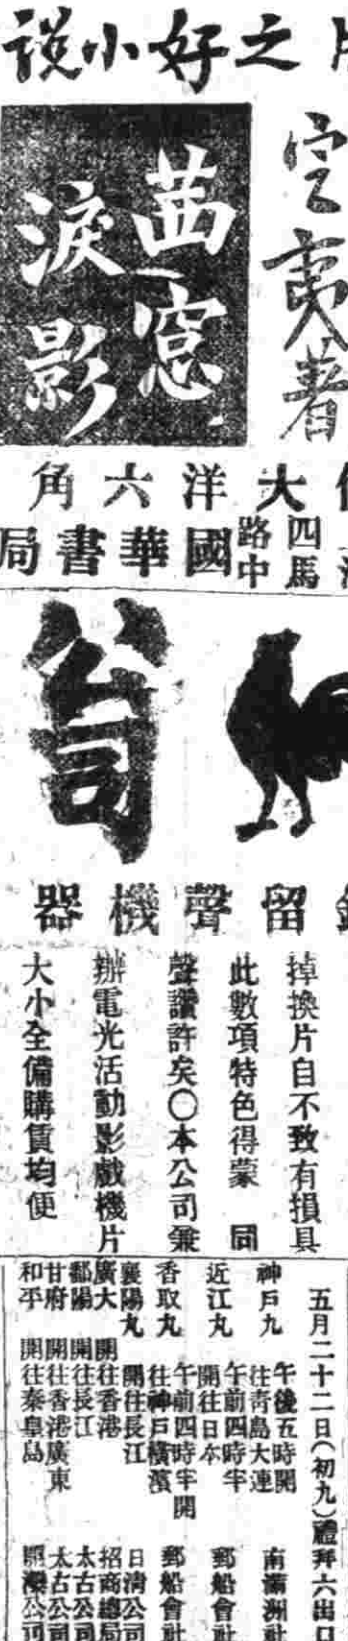 說小好之
定夷著
茜窓
淚影
角六洋大
四馬
路中
局書華國
公司
器機聲留
掉換片自不致有損具
此數項特色得蒙 同
聲讚許矣〇本公司兼
辦電光活動影戲機片
大小全備購賃均便
五月二十二日(初九)禮拜六出口
神戶丸 午後五時開往青島大連 南滿洲社
近江丸 午前四時半開往日本 郵船會社
香取丸 午前四時半開往神戶橫濱 郵船會社
襄陽丸 開往長江 日清公司
廣大 開往香港 招商總局
鄱陽 開往長江 太古公司
甘府 開往香港廣東 太古公司
和平 開往秦皇島 開灤公司